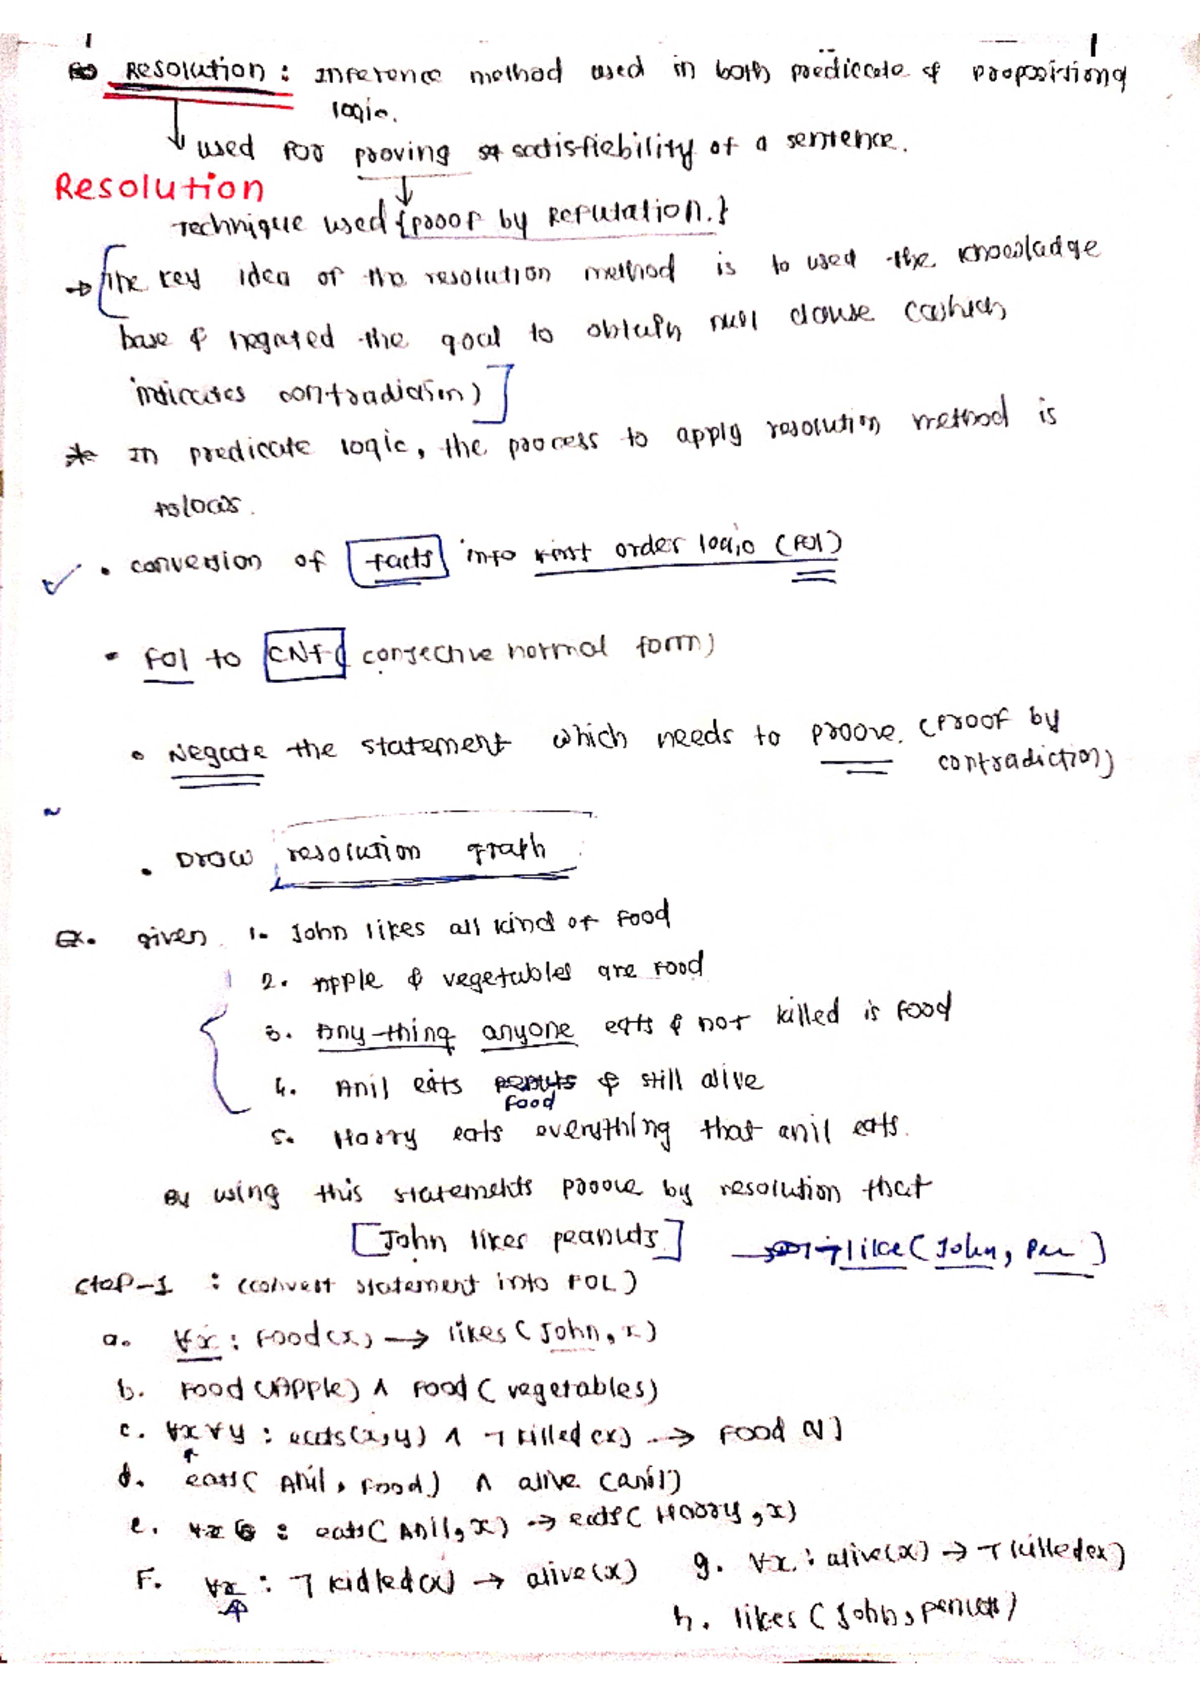 Resolution : Inference method used in both predicate & propositional
logic.
used for proving satisfiability of a sentence.
Resolution
Technique used {proof by Refutation.}
→ [The key idea of the resolution method is to used the knowladge
base & negated the goal to obtain null clause (which
indicates contradiction)]
* In predicate logic, the process to apply resolution method is
• conversion of facts into First order logic (FOL)
• FOL to CNF (conjective normal form)
• Negate the statement which needs to proove. (Proof by
contradiction)
• Draw resolution graph
Ex. given 1. John likes all kind of Food
2. Apple & vegetables are Food
3. Any-thing anyone eats & not killed is Food
4. Anil eats penuts & still alive
food
5. Harry eats everything that anil eats.
By using this statements proove by resolution that
[John likes peanuts]
¬like(John, Pen)
Step-1 : (convert statement into FOL)
a. ∀x : Food(x) → likes (John, x)
b. Food (Apple) ∧ Food (vegetables)
c. ∀x ∀y : eats(x,y) ∧ ¬killed(x) → Food (y)
d. eats( Anil, Food) ∧ alive (anil)
e. ∀x : eats( Anil, x) → eats( Harry, x)
F. ∀x : ¬killed(x) → alive(x)
g. ∀x : alive(x) → ¬killed(x)
h. likes (John, penuts)